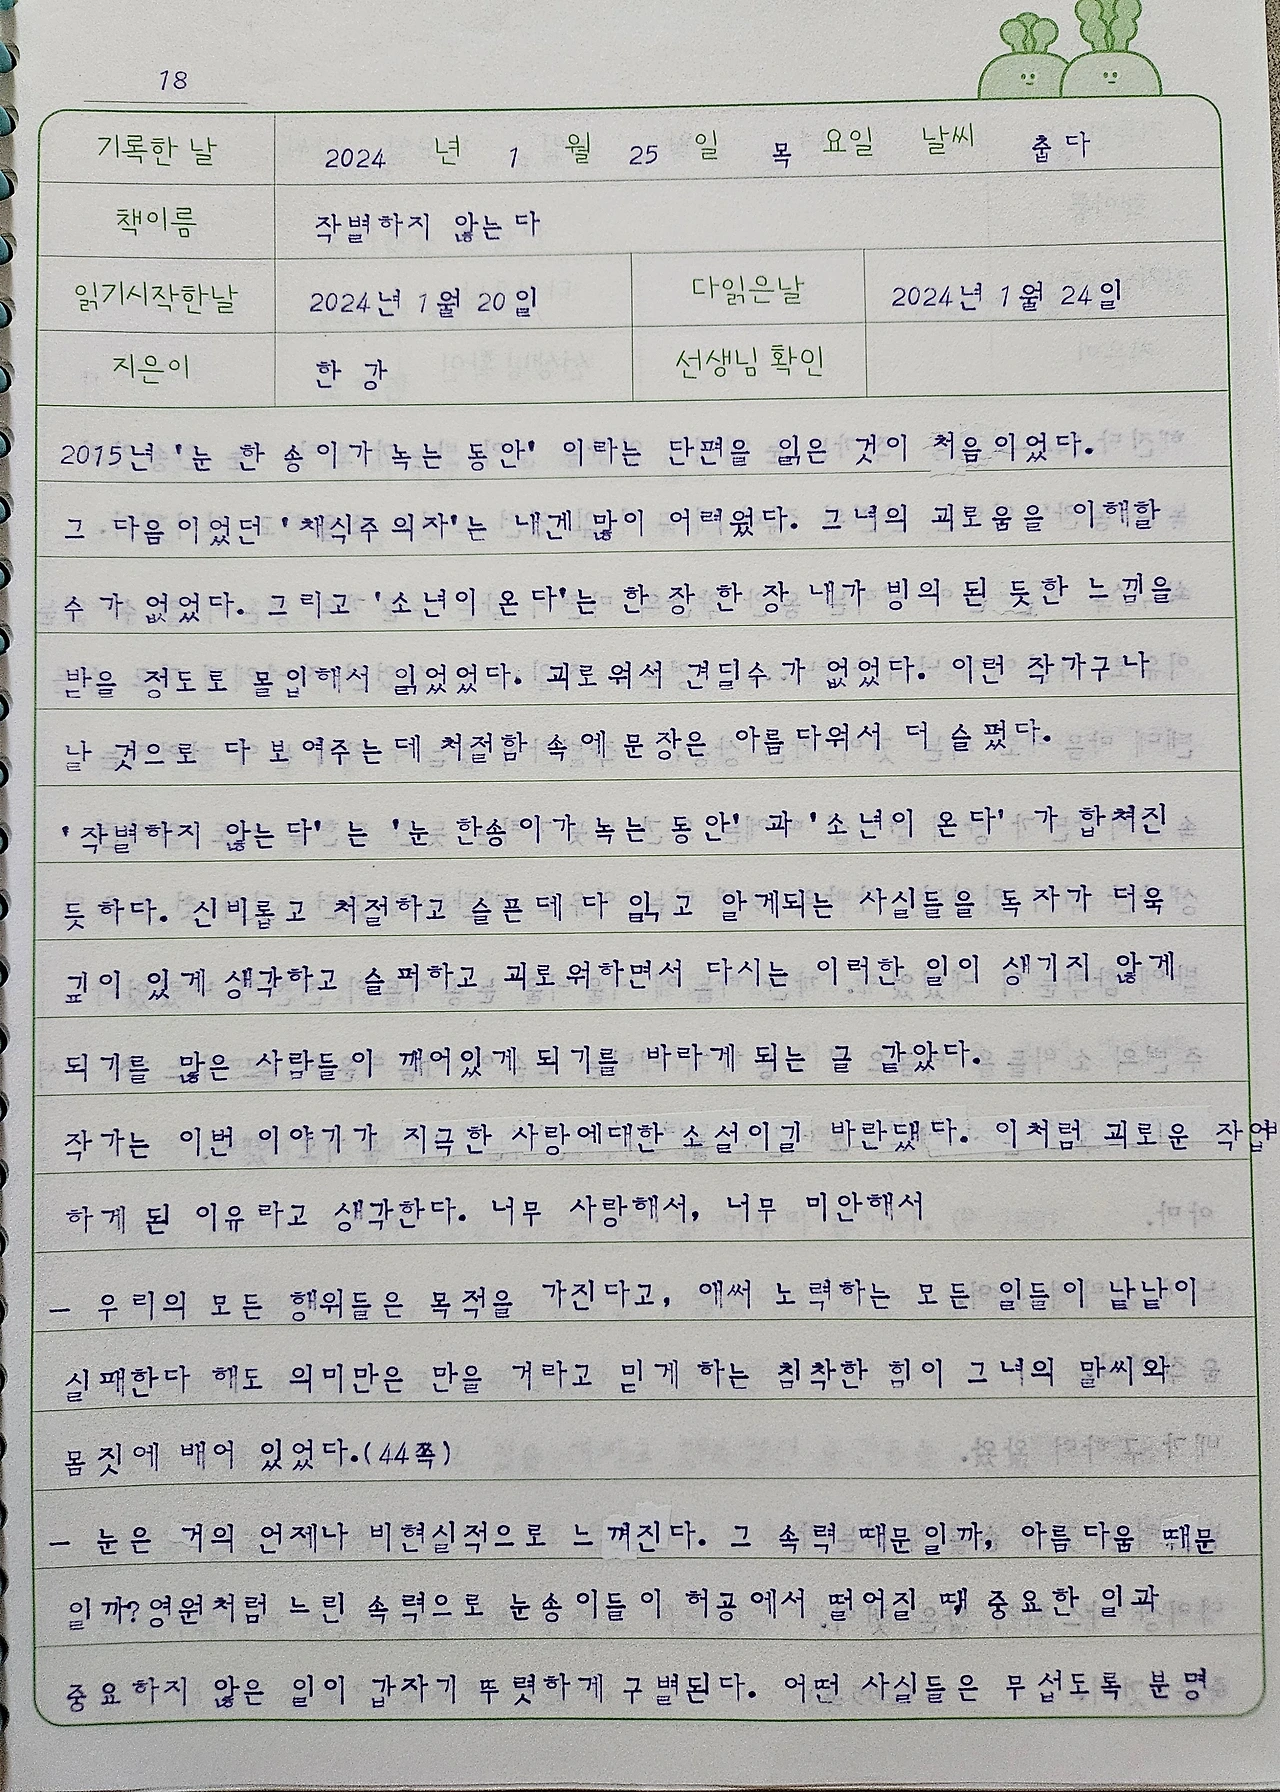 18
기록한 날 2024 년 1 월 25 일 목 요일 날씨 춥다
책이름 작별하지 않는다
읽기시작한날 2024년 1월 20일 다읽은날 2024년 1월 24일
지은이 한 강 선생님 확인
2015년 '눈 한 송이가 녹는 동안' 이라는 단편을 읽은 것이 처음이었다.
그 다음이었던 '채식주의자'는 내겐 많이 어려웠다. 그녀의 괴로움을 이해할
수가 없었다. 그리고 '소년이 온다'는 한 장 한 장 내가 빙의 된 듯한 느낌을
받을 정도로 몰입해서 읽었었다. 괴로워서 견딜수가 없었다. 이런 작가구나
날 것으로 다 보여주는데 처절함 속에 문장은 아름다워서 더 슬펐다.
'작별하지 않는다'는 '눈 한송이가 녹는 동안'과 '소년이 온다'가 합쳐진
듯하다. 신비롭고 처절하고 슬픈데 다 읽고 알게되는 사실들을 독자가 더욱
깊이 있게 생각하고 슬퍼하고 괴로워하면서 다시는 이러한 일이 생기지 않게
되기를 많은 사람들이 깨어있게 되기를 바라게 되는 글 같았다.
작가는 이번 이야기가 지극한 사랑에대한 소설이길 바란댔다. 이처럼 괴로운 작업
하게 된 이유라고 생각한다. 너무 사랑해서, 너무 미안해서
– 우리의 모든 행위들은 목적을 가진다고, 애써 노력하는 모든 일들이 낱낱이
실패한다 해도 의미만은 만을 거라고 믿게 하는 침착한 힘이 그녀의 말씨와
몸짓에 배어 있었다.(44쪽)
– 눈은 거의 언제나 비현실적으로 느껴진다. 그 속력 때문일까, 아름다움 때문
일까? 영원처럼 느린 속력으로 눈송이들이 허공에서 떨어질 때, 중요한 일과
중요하지 않은 일이 갑자기 뚜렷하게 구별된다. 어떤 사실들은 무섭도록 분명